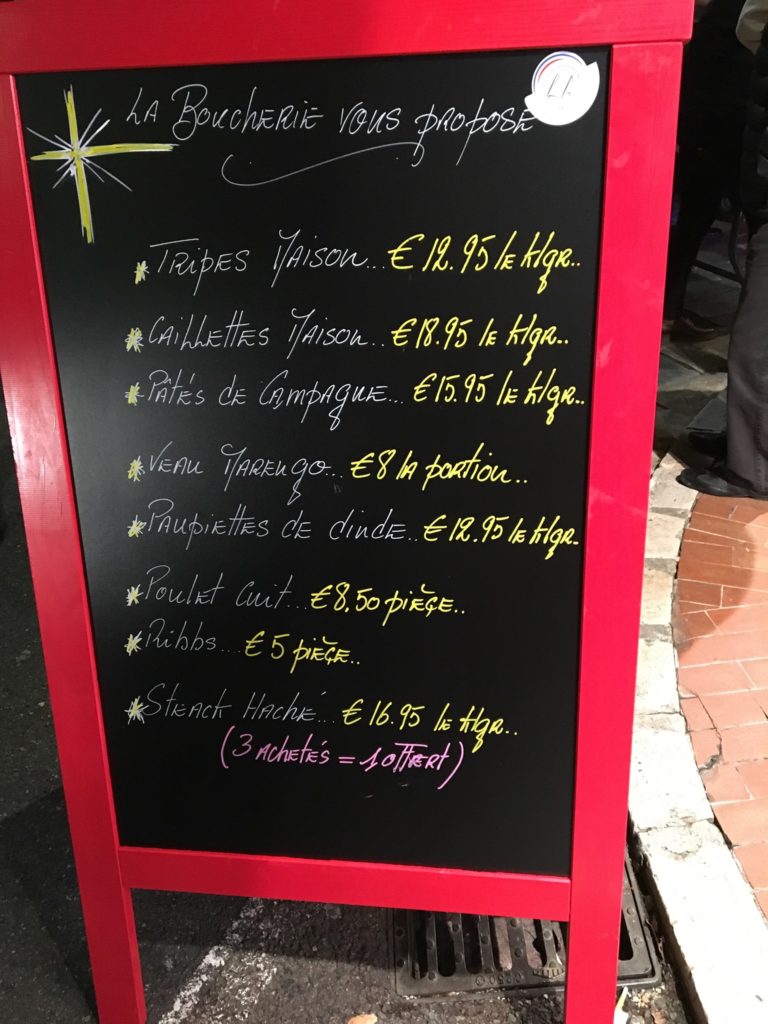 LA BOUCHERIE VOUS PROPOSE
TRIPES MAISON... € 12.95 le Klgr..
CAILLETTES MAISON.. €18.95 le Klgr..
PÂTÉS DE CAMPAGNE... €15.95 le Klgr..
VEAU MARENGO... €8 la portion..
PAUPIETTES DE dindE.. €12.95 le Klgr..
POULET CUIT... €8.50 pièçe..
Ribbs... €5 pièçe..
STEACK HACHÉ... €16.95 le Klgr..
(3 ACHETÉS = 1 OFFERT)